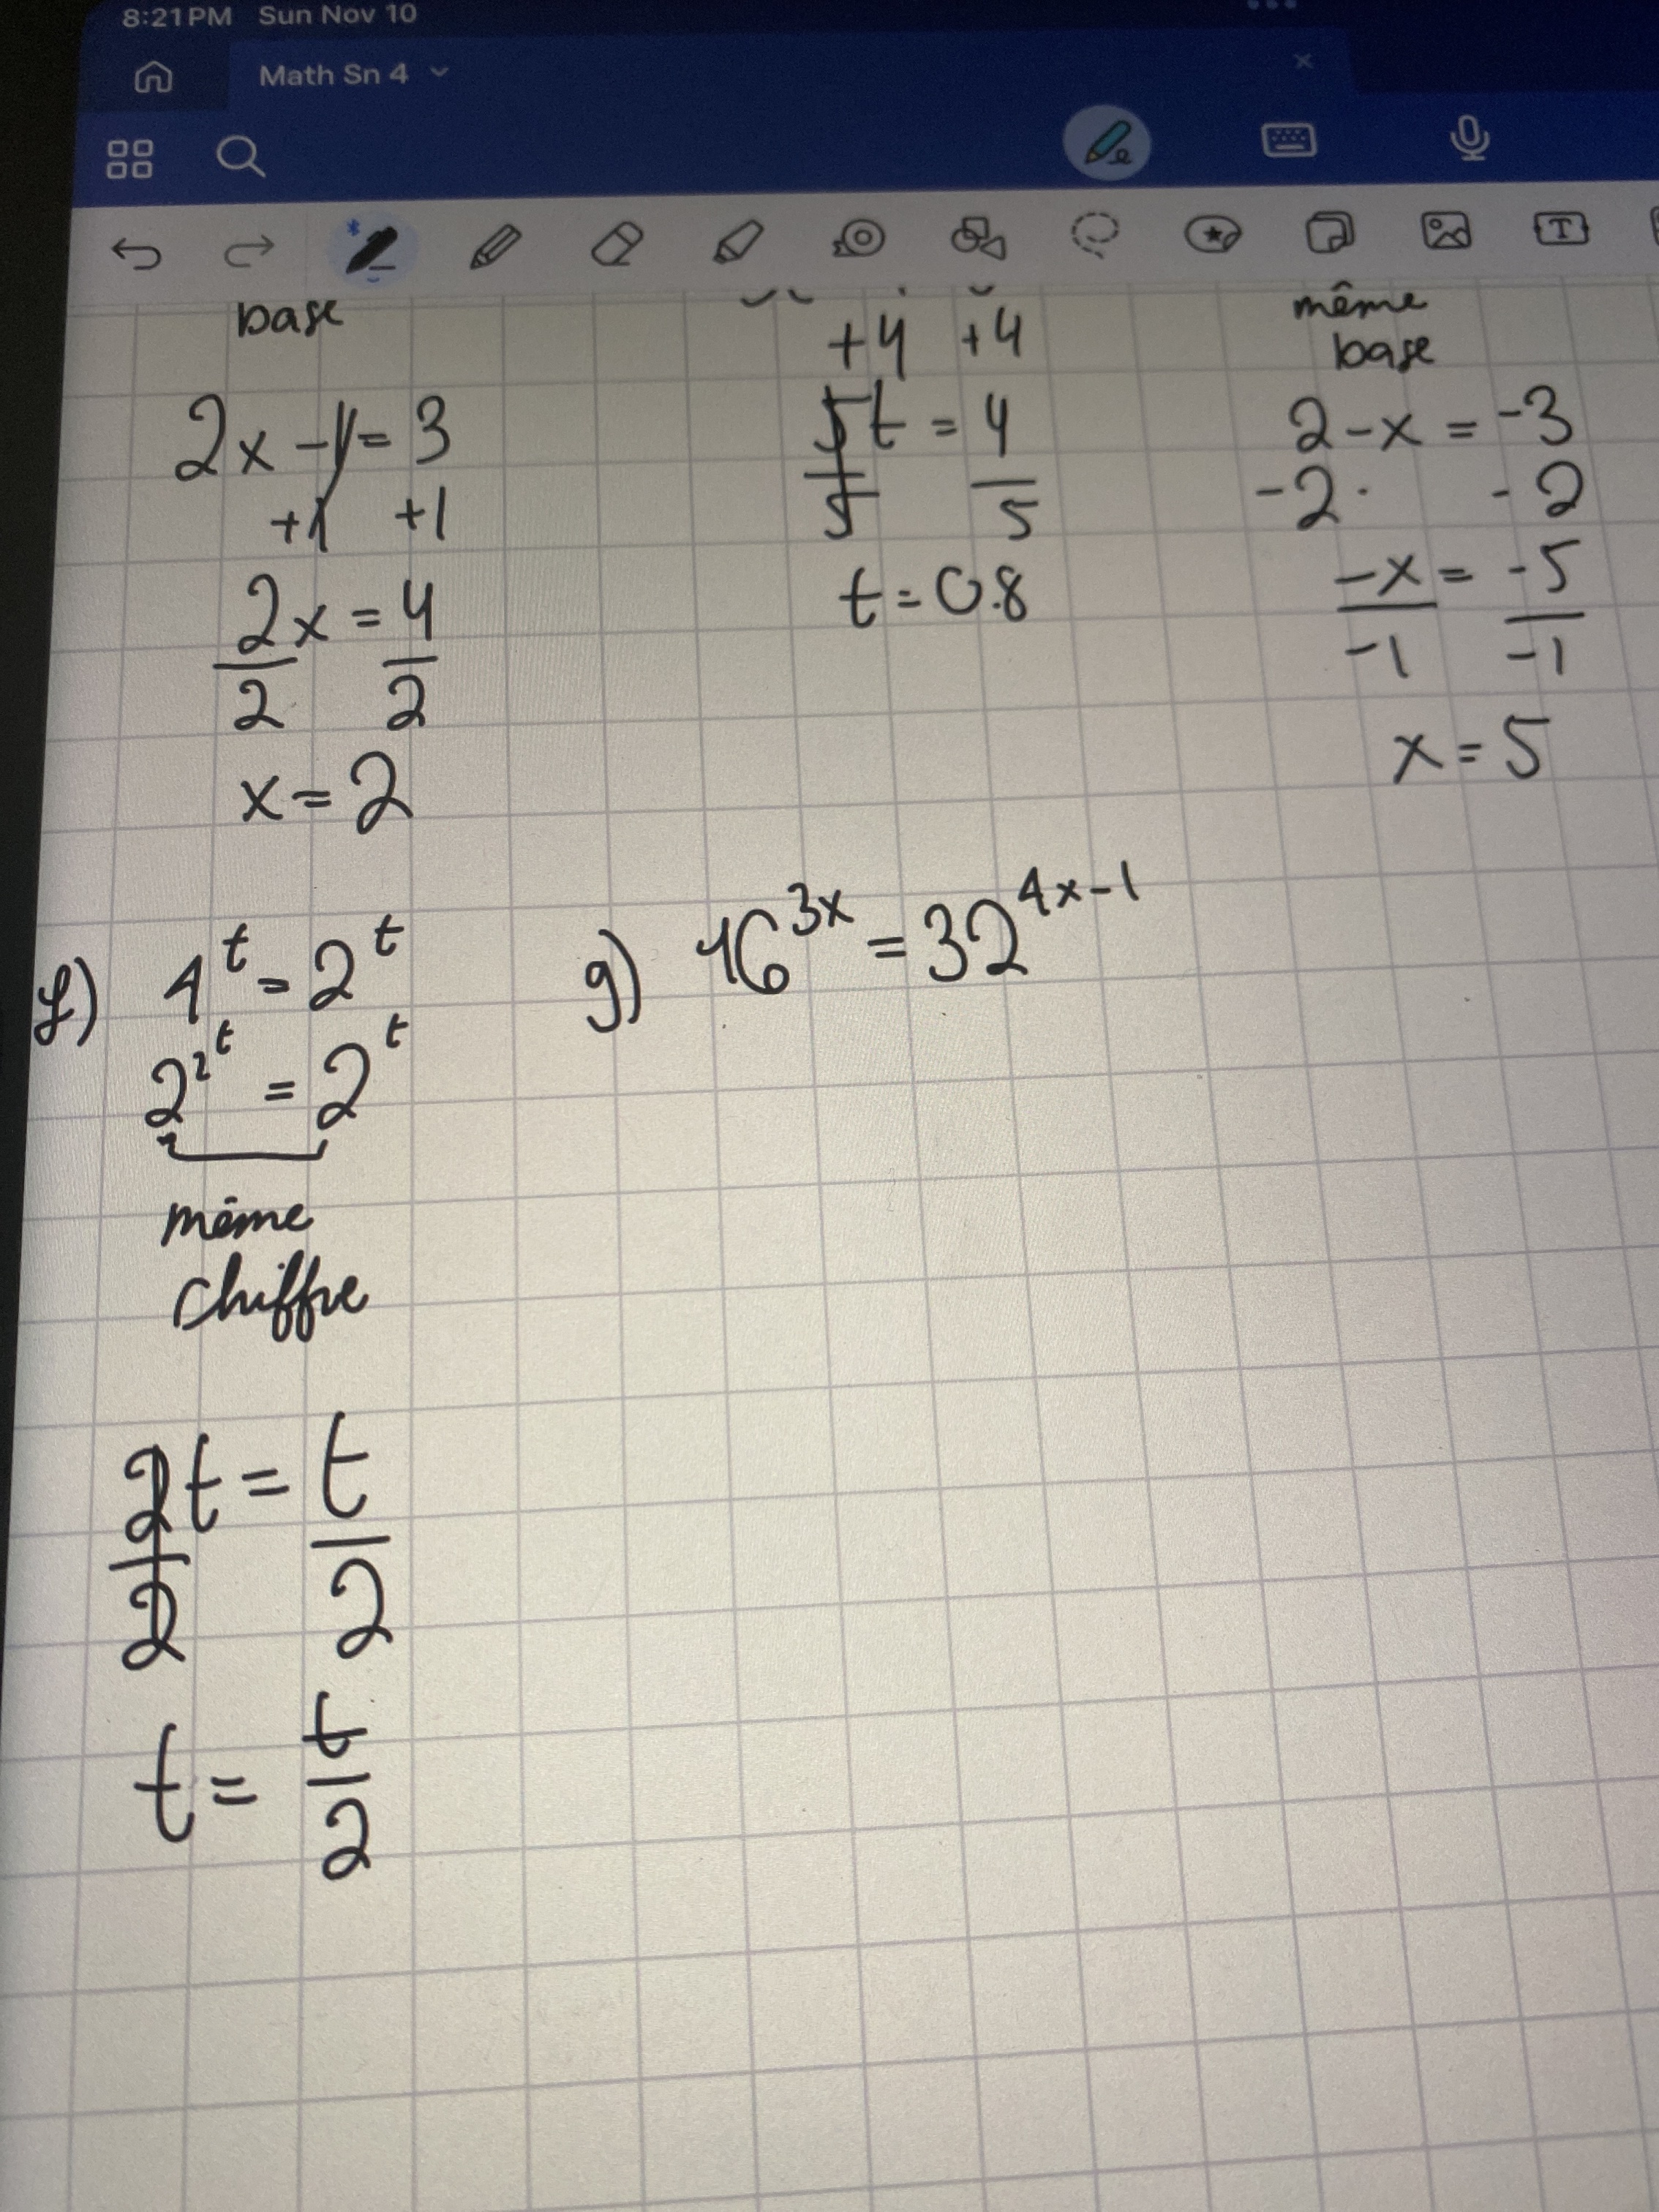 8:21 PM Sun Nov 10
Math Sn 4
base
2x - 1 = 3
+1 +1
2x = 4
2 2
x = 2
+4 +4
5t = 4
5 5
t = 0.8
même
base
2 - x = -3
-2 - 2
-x = -5
-1 -1
x = 5
f) 4^t = 2^t
2^2^t = 2^t
même
chiffre
2t = t
2 2
t = t/2
g) 16^3x = 32^4x-1